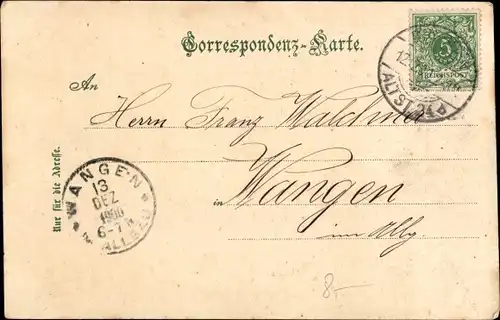 Correspondenz-Karte.
5
REICHSPOST
12
ALTST.
An
Herrn Franz
Nur für die Adresse.
in Wangen
im Allg.
WANGEN
13
DEZ
6-7N
ALLGÄU
8,-